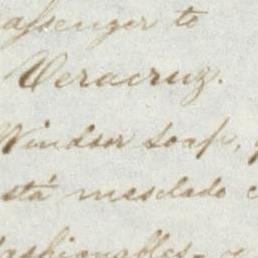 passenger to
Veracruz.
Windsor Soap,
está mesclado
fashionables